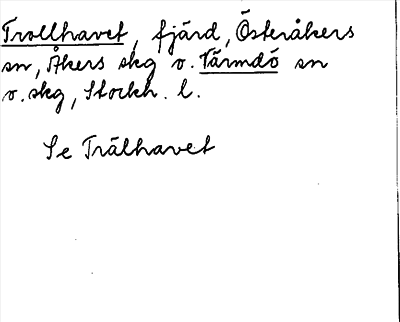 Trollhavet, fjärd, Österåkers
sn, Åkers skg o. Värmdö sn
o. skg, Stockh. l.
Se Trälhavet